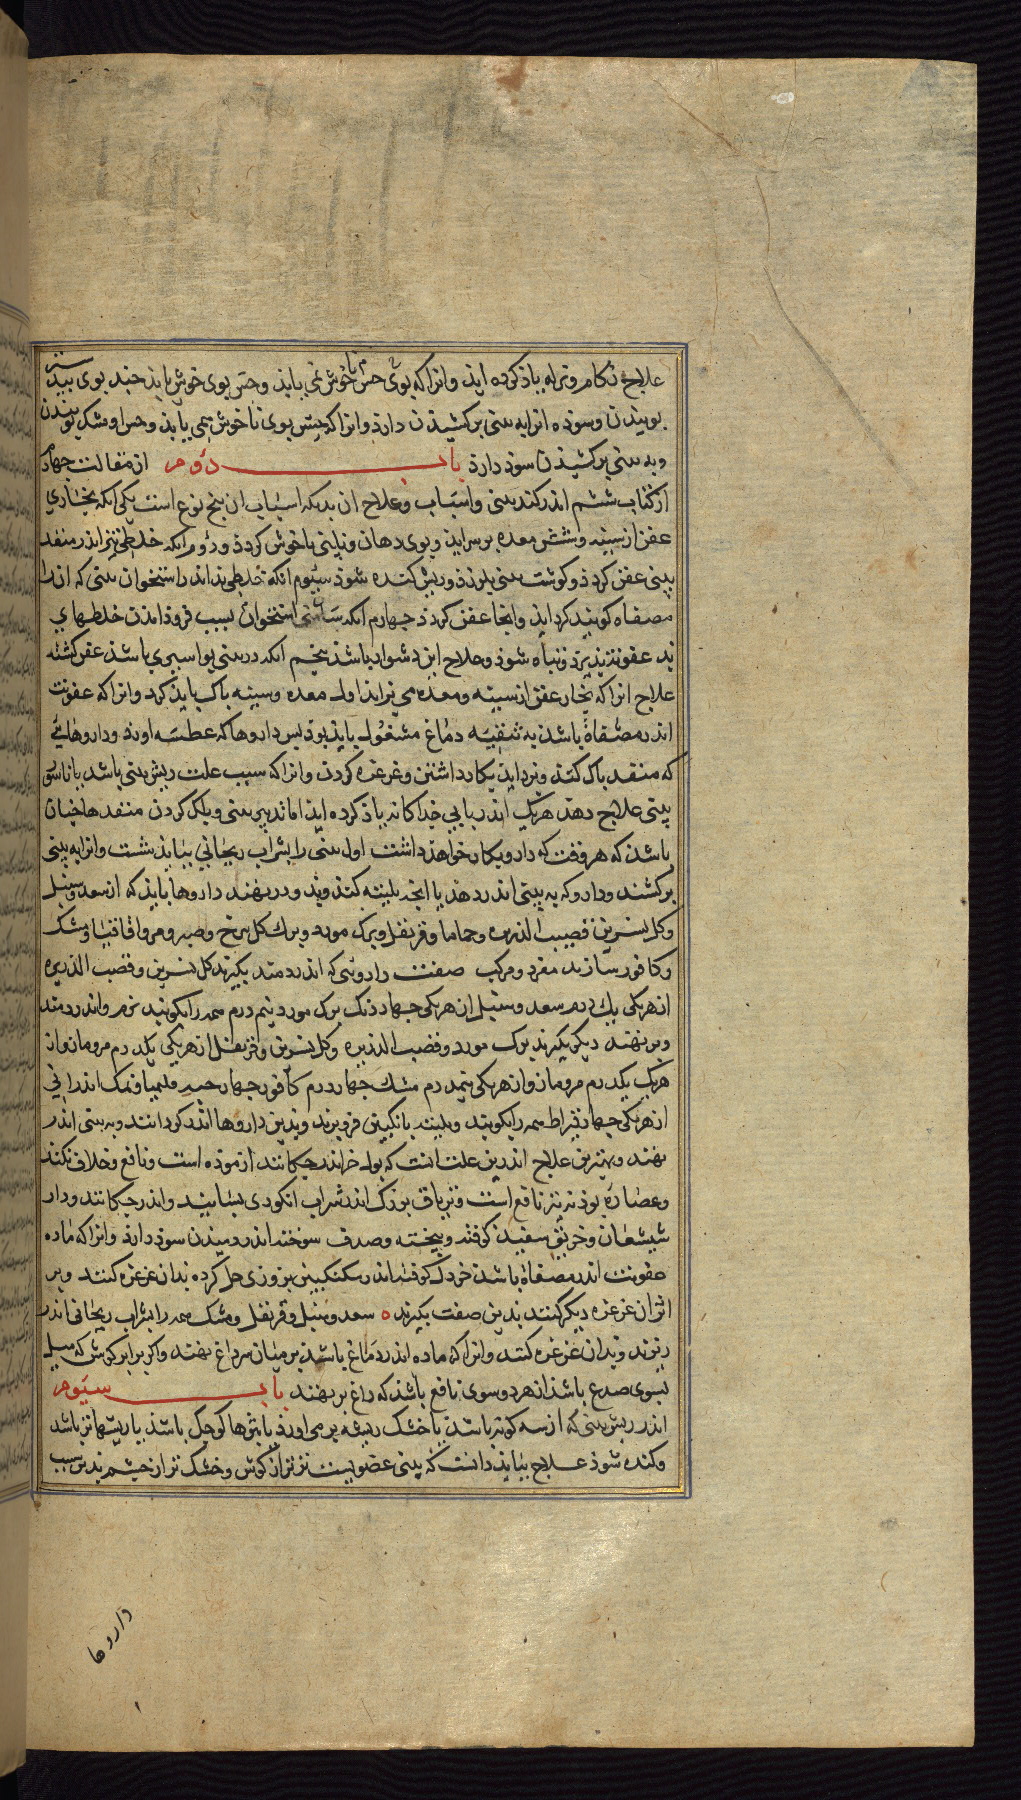 علاج زکام و نزله یاذ کرده ایذ و انرا که بوی خوش نمی یابذ و حس بوی خوش یابذ جند بوی بیذستر
بوییذن و سوذه انرا به بینی برکشیذن دارذ و انرا که حس بوی ناخوش می یابذ و حس او مشک بوییذن
و به بینی برکشیذن سوذ دارذ باب دوم از مقالت چهارم
از کتاب ششم اندر کند بینی و اسباب و علاج ان بدانکه اسباب ان پنج نوع است یکی انکه بخاری
عفن از سینه و شش و معده بر سر ایذ و بوی دهان و بینی ناخوش کردذ و دوم انکه خلطی تیز اندر منفذ
بینی عفن کردذ و کوشت بینی بلرزذ و ریش کنده شوذ سیوم انکه خلطی بذ اندر استخوان بینی که انرا
مصفاه کویند کرد ایذ و انجا عفن کردذ چهارم انکه استخوان بسبب فروذ امدن خلطهای
بذ عفونت پذیرذ و تباه شوذ و علاج این دشوار باشذ پنجم انکه در بینی بواسیری باشذ عفن کشته
علاج انرا که بخار عفن از سینه و معده می براید اول معده و سینه پاک بایذ کرد و انرا که عفونت
اندر مصفاة باشذ به تنقیه دماغ مشغول بایذ بوذ پس داروها که عطسه اورذ و داروهائی
که منفذ پاک کنذ و بزداید بکار داشتن و غرغره کردن و انرا که سبب علت ریش بینی باشذ یا ناسور
بینی علاج دهند هر یک اندر بابی جداکانه یاذ کرده ایذ اما تدبیر بینی و پاک کردن منفذها چنان
باشذ که هر وقت که دارو بکار خواهذ داشت اول بینی را بشراب ریحانی ببایذ شست و انرا به بینی
برکشند و دارو که به بینی اندر دهند یا انچه بلیته کنند و بر نهند داروها بایذ که از سعد و سنبل
و کل نسرین و قصب الذریره و حماما و قرنفل و برک مورد و برک کل سرخ و صبر و مر و اقاقیا و مشک
و کافور سازند مفرد و مرکب صفت داروئی که اندر دمند بکیرند کل نسرین و قصب الذریره
از هر یکی یک درم سعد و سنبل از هر یکی چهار دنک برک مورد نیم درم همه را بکویند نرم و اندر دمند
و بر نهند دیکر بکیرند برک مورد و قصب الذریره و کل نسرین و قرنفل از هر یکی یک درم مر و مازو از
هر یک یکدرم مر و مازو از هر یکی نیم درم مشک چهار درم کافور چهار حبه قلیمیا و نمک اندرانی
از هر یکی چهار قیراط همه را بکوبند و بلیته بانکبین فرو برند و بدین داروها اندر کردانند و به بینی اندر
نهند و بهترین علاج اندرین علت انست که بول خر اندر چکانند ازموذه است و نافع و خلاف نکند
و عصاره بوذنه نیز نافع است و تریاق بزرک اندر شراب انکوری بسایند و اندر چکانند و دار
شیشعان و خربق سفید کوفته و بیخته و صدف سوخته اندر دمیدن سوذ دارذ و انرا که ماده
عفونت اندر مصفاة باشذ خردل کوفته اندر سکنکبین بزوری حل کرده بذان غرغره کنند و بر
اثر ان غرغره دیکر کنند بدین صفت بکیرند ه سعد و سنبل و قرنفل و مشک همه را بشراب ریحانی اندر
ریزند و بذان غرغره کنند و انرا که ماده اندر دماغ باشذ بر میان سر داغ نهند و اکر برابر کوش که میل
بسوی صدغ باشذ از هر دو سوی نافع باشذ که داغ بر نهند باب سیوم
اندر ریش بینی که از سه کونه باشذ یا خشک ریشه بر می اورذ یا بثرها کوچک باشذ یا ریشها تر باشذ
و کنده شوذ علاج ببایذ دانست که بینی عضویست تر تر از کوش و خشک تر از چشم بدین سبب
داروها